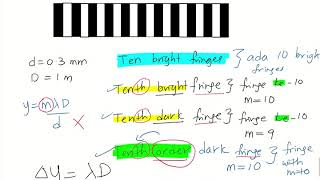 d = 0.3 mm
D = 1 m
Ten bright fringes } ada 10 bright fringes
Tenth bright fringe } fringe ke-10
m = 10
y = mλD / d
Tenth dark fringe } fringe ke-10
m = 9
Tenth order dark fringe } fringe with m=10
m = 10
ΔY = λD